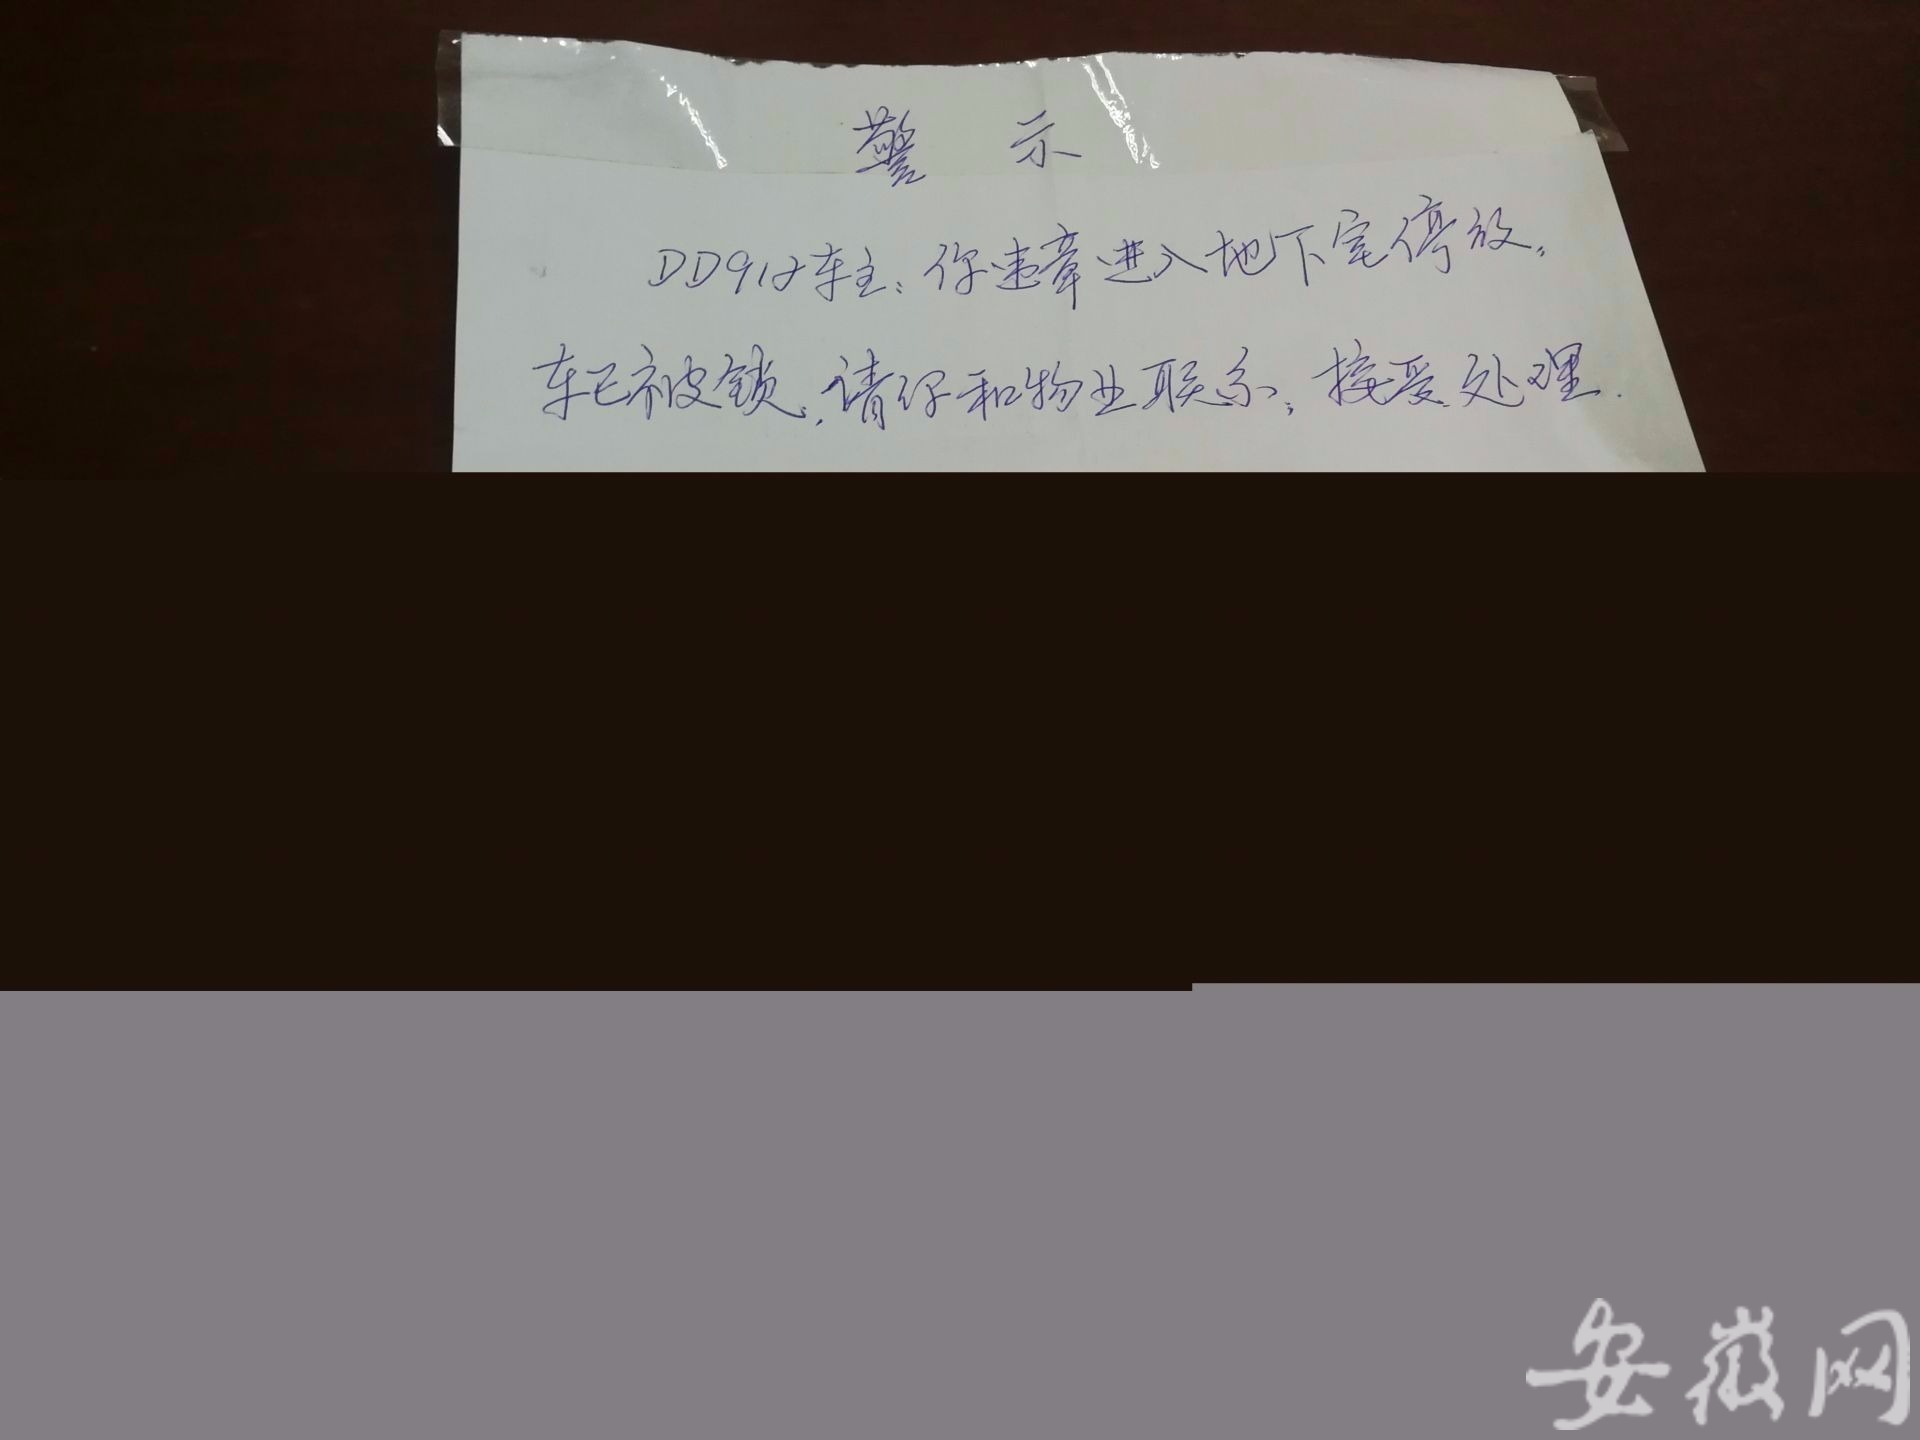 警 示
DD912车主：你违章进入地下室停放。
车已被锁，请你和物业联系，接受处理.
安徽网